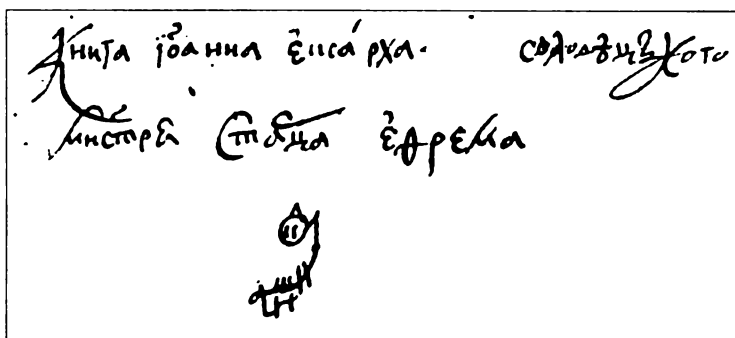 Книга їоанна ѯпсарха. соловецкого
мнстрѧ старца ефрема